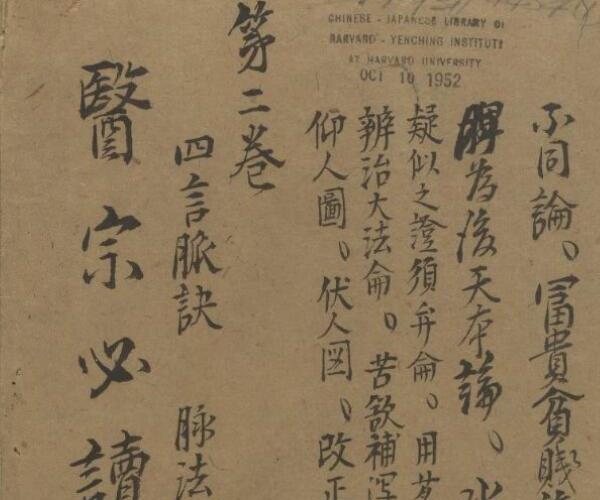 CHINESE - JAPANESE LIBRARY OF
HARVARD - YENCHING INSTITUTE
AT HARVARD UNIVERSITY
OCT 10 1952
不同論。冨貴貧賤
脾為後天本論。水
疑似之證須弁侖。用
辨治大法侖。苦欲補
仰人圖。伏人図。改正
苐二卷
四言脈訣 脉法
醫宗必讀